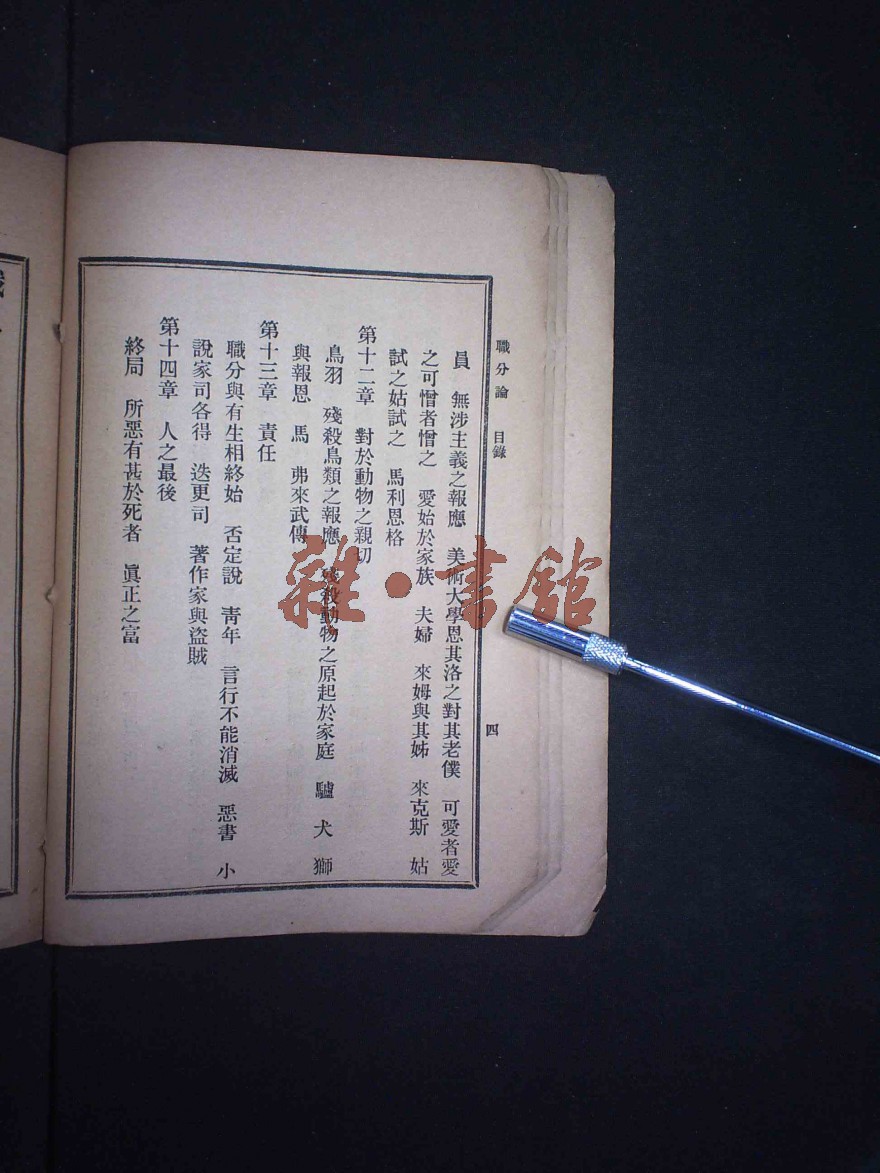 職分論 目錄
四
員 無涉主義之報應 美術大學恩其洛之對其老僕 可愛者愛
之可憎者憎之 愛始於家族 夫婦 來姆與其姊 來克斯 姑
試之姑試之 馬利恩格
第十二章 對於動物之親切
鳥羽 殘殺鳥類之報應 殘殺動物之原起於家庭 驢 犬 獅
與報恩 馬 弗來武傳
第十三章 責任
職分與有生相終始 否定說 靑年 言行不能消滅 惡書 小
說家司各得 迭更司 著作家與盜賊
第十四章 人之最後
終局 所惡有甚於死者 眞正之富
雜·書館